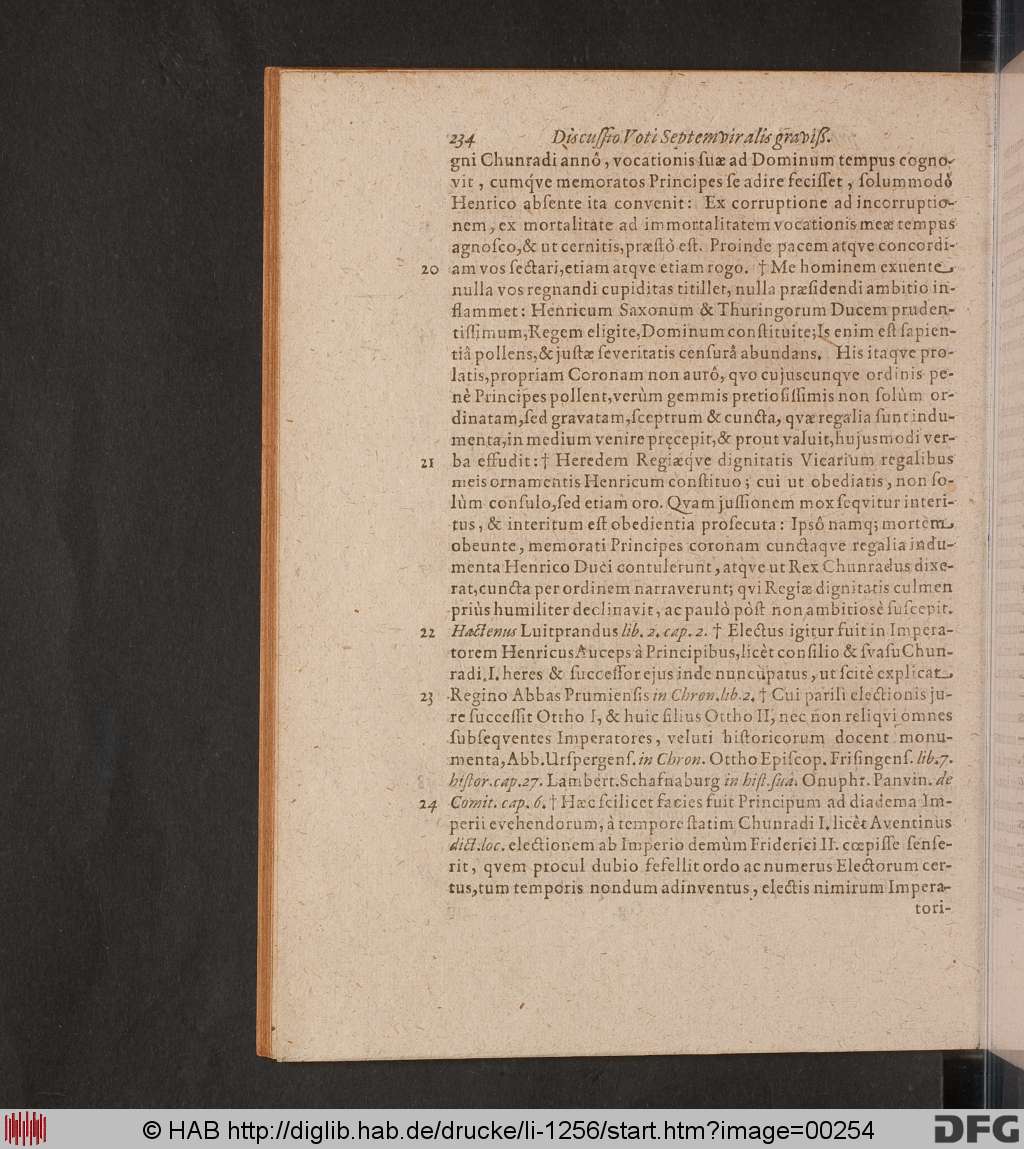 234 Discussio Voti Septemviralis graviss.
gni Chunradi annô, vocationis suæ ad Dominum tempus cogno-
vit, cumqve memoratos Principes se adire fecisset, solummodô
Henrico absente ita convenit: Ex corruptione ad incorruptio-
nem, ex mortalitate ad immortalitatem vocationis meæ tempus
agnosco, & ut cernitis, præstò est. Proinde pacem atqve concordi-
20 am vos sectari, etiam atqve etiam rogo. † Me hominem exuente
nulla vos regnandi cupiditas titillet, nulla præsidendi ambitio in-
flammet: Henricum Saxonum & Thuringorum Ducem pruden-
tissimum, Regem eligite, Dominum constituite; Is enim est sapien-
tiâ pollens, & justæ severitatis censurâ abundans. His itaqve pro-
latis, propriam Coronam non aurô, qvo cujuscunqve ordinis pe-
nè Principes pollent, verùm gemmis pretiosissimis non solùm or-
dinatam, sed gravatam, sceptrum & cuncta, qvæ regalia sunt indu-
menta, in medium venire precepit, & prout valuit, hujusmodi ver-
21 ba effudit: † Heredem Regiæqve dignitatis Vicarium regalibus
meis ornamentis Henricum constituo; cui ut obediatis, non so-
lùm consulo, sed etiam oro. Qvam jussionem mox seqvitur interi-
tus, & interitum est obedientia prosecuta: Ipsô namq; mortem
obeunte, memorati Principes coronam cunctaqve regalia indu-
menta Henrico Duci contulerunt, atqve ut Rex Chunradus dixe-
rat, cuncta per ordinem narraverunt; qvi Regiæ dignitatis culmen
priùs humiliter declinavit, ac paulò pòst non ambitiosè suscepit.
22 Hactenus Luitprandus lib. 2. cap. 2. † Electus igitur fuit in Impera-
torem Henricus Auceps à Principibus, licèt consilio & svasu Chun-
radi. I. heres & successor ejus inde nuncupatus, ut scitè explicat
23 Regino Abbas Prumiensis in Chron. lib. 2. † Cui parili electionis ju-
re successit Ottho I, & huic filius Ottho II, nec non reliqvi omnes
subseqventes Imperatores, veluti historicorum docent monu-
menta, Abb. Urspergens. in Chron. Ottho Episcop. Frisingens. lib. 7.
histor. cap. 27. Lambert. Schafnaburg in hist. suâ. Onuphr. Panvin. de
24 Comit. cap. 6. † Hæc scilicet facies fuit Principum ad diadema Im-
perii evehendorum, à tempore statim Chunradi I. licèt Aventinus
dict. loc. electionem ab Imperio demùm Friderici II. cœpisse sense-
rit, qvem procul dubio fefellit ordo ac numerus Electorum cer-
tus, tum temporis nondum adinventus, electis nimirum Impera-
tori-
© HAB http://diglib.hab.de/drucke/li-1256/start.htm?image=00254
DFG